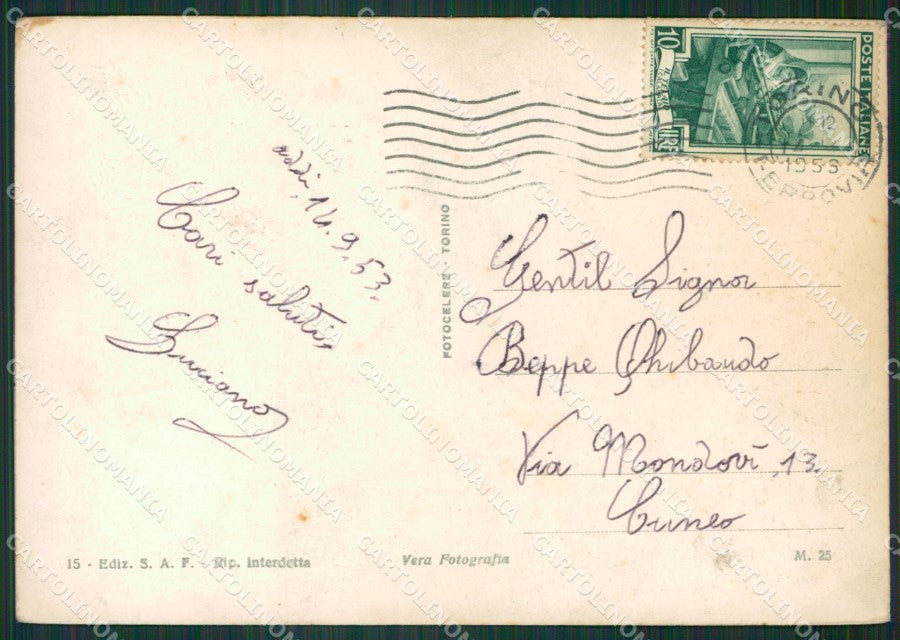 addi, 14.9.53.
Cari saluti,
Luciano
FOTOCELERE - TORINO
10
LIRE
POSTE ITALIANE
TORINO
1953
FERROVIA
Gentil Signor
Beppe Ghibaudo
Via Mondovì, 13.
Cuneo
15 - Ediz. S. A. F. - Rip. interdetta
Vera Fotografia
M. 25
CARTOLINOMANIA